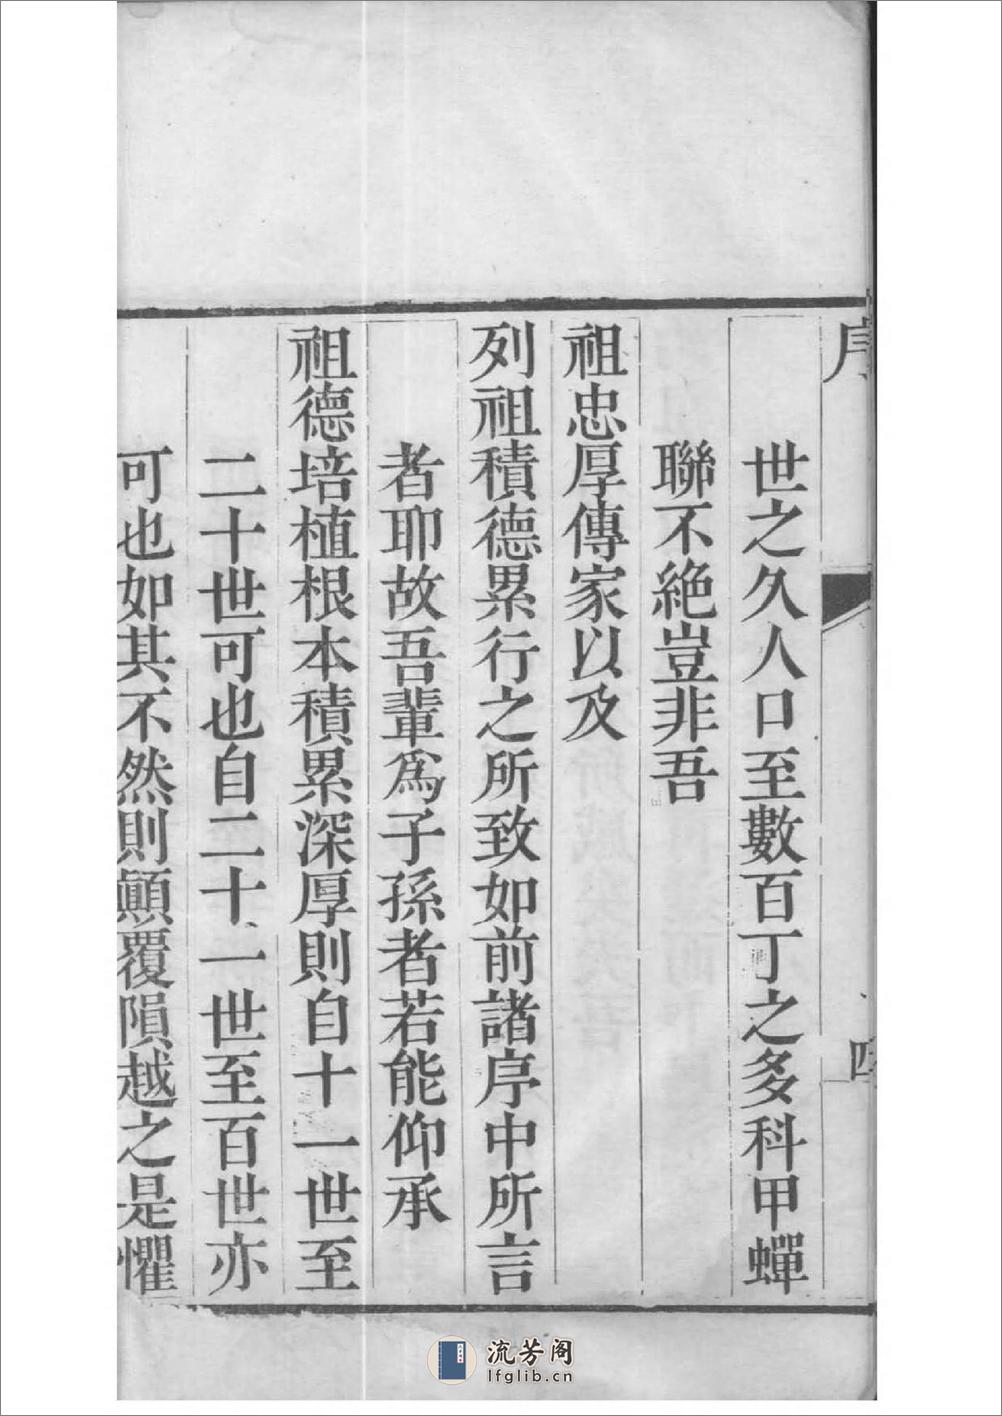 序
四
世之久人口至數百丁之多科甲蟬
聯不絶豈非吾
祖忠厚傳家以及
列祖積德累行之所致如前諸序中所言
者耶故吾輩爲子孫者若能仰承
祖德培植根本積累深厚則自十一世至
二十世可也自二十一世至百世亦
可也如其不然則顛覆隕越之是懼
流芳阁
lfglib.cn